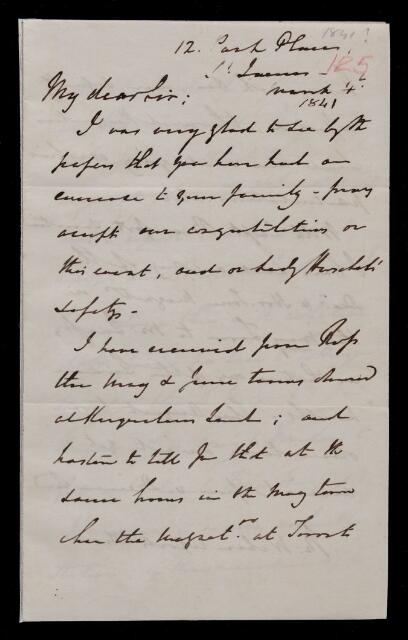 1841?
125
12. Park Place,
St James
March 4
1841
My dear Sir;
I was very glad to see by the
papers that you have had an
encrease to your family - pray
accept our congratulations on
this event, and on Lady Herschel's
safety -
I have received from Ross
the May & June terms observed
at Kerguelens Land; and
hasten to tell you that at the
same hours in the May term
when the magnets at Toronto